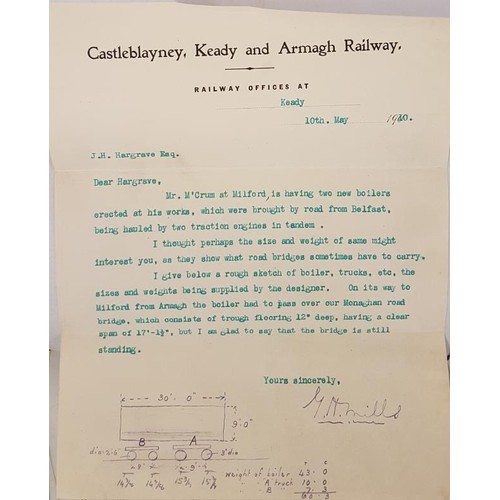 Castleblayney, Keady and Armagh Railway.
RAILWAY OFFICES AT
Keady
10th. May 1910.
J.H. Hargrave Esq.
Dear Hargrave,
Mr. M'Crum at Milford, is having two new boilers
erected at his works, which were brought by road from Belfast,
being hauled by two traction engines in tandem .
I thought perhaps the size and weight of same might
interest you, as they show what road bridges sometimes have to carry.
I give below a rough sketch of boiler, trucks, etc, the
sizes and weights being supplied by the designer. On its way to
Milford from Armagh the boiler had to pass over our Monaghan road
bridge, which consists of trough flooring 12" deep, having a clear
span of 17'-1½", but I am glad to say that the bridge is still
standing.
Yours sincerely,
G.H. Mills
30'. 0"
9'.0"
B A
dia. 2'.6" 3' dia
weight of boiler 43. 0
" A truck 10. 0
" B " 7. 3
60. 3